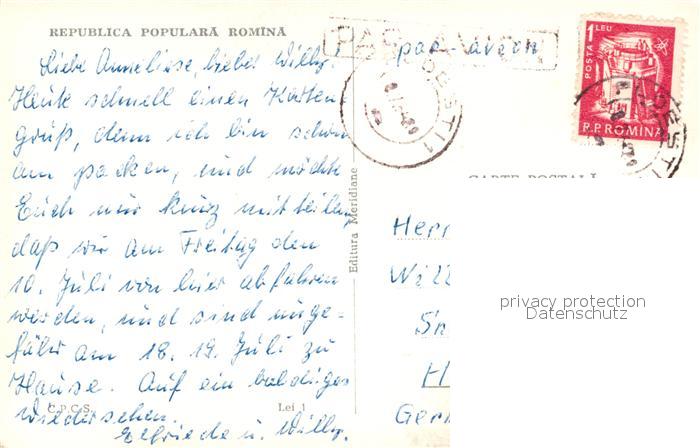 REPUBLICA POPULARĂ ROMÎNĂ
Liebe Anneliese, lieber Willy.
Heute schnell einen Karten-
gruß, denn ich bin schon
am packen, und möchte
Euch nur kurz mitteilen,
daß wir am Freitag den
10. Juli von hier abfahren
werden, und sind unge-
fähr am 18. 19. Juli zu
Hause. Auf ein baldiges
Wiedersehen
Elfriede u. Willy.
C.P.C.S.
Lei 1
Editura Meridiane
PAR AVION
par avion
POSTA 1 LEU
R.P.ROMINA
CARTE POSTALĂ
Herr
Will
Germ
privacy protection
Datenschutz